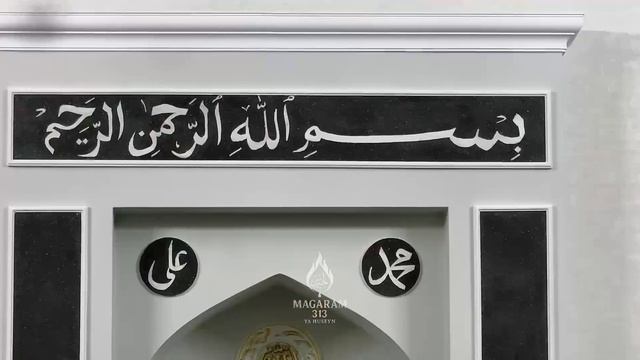 بِسْمِ اللهِ الرَّحْمنِ الرَّحيمِ
محمد
علی
MAGARAM
313
YA HUSEYN